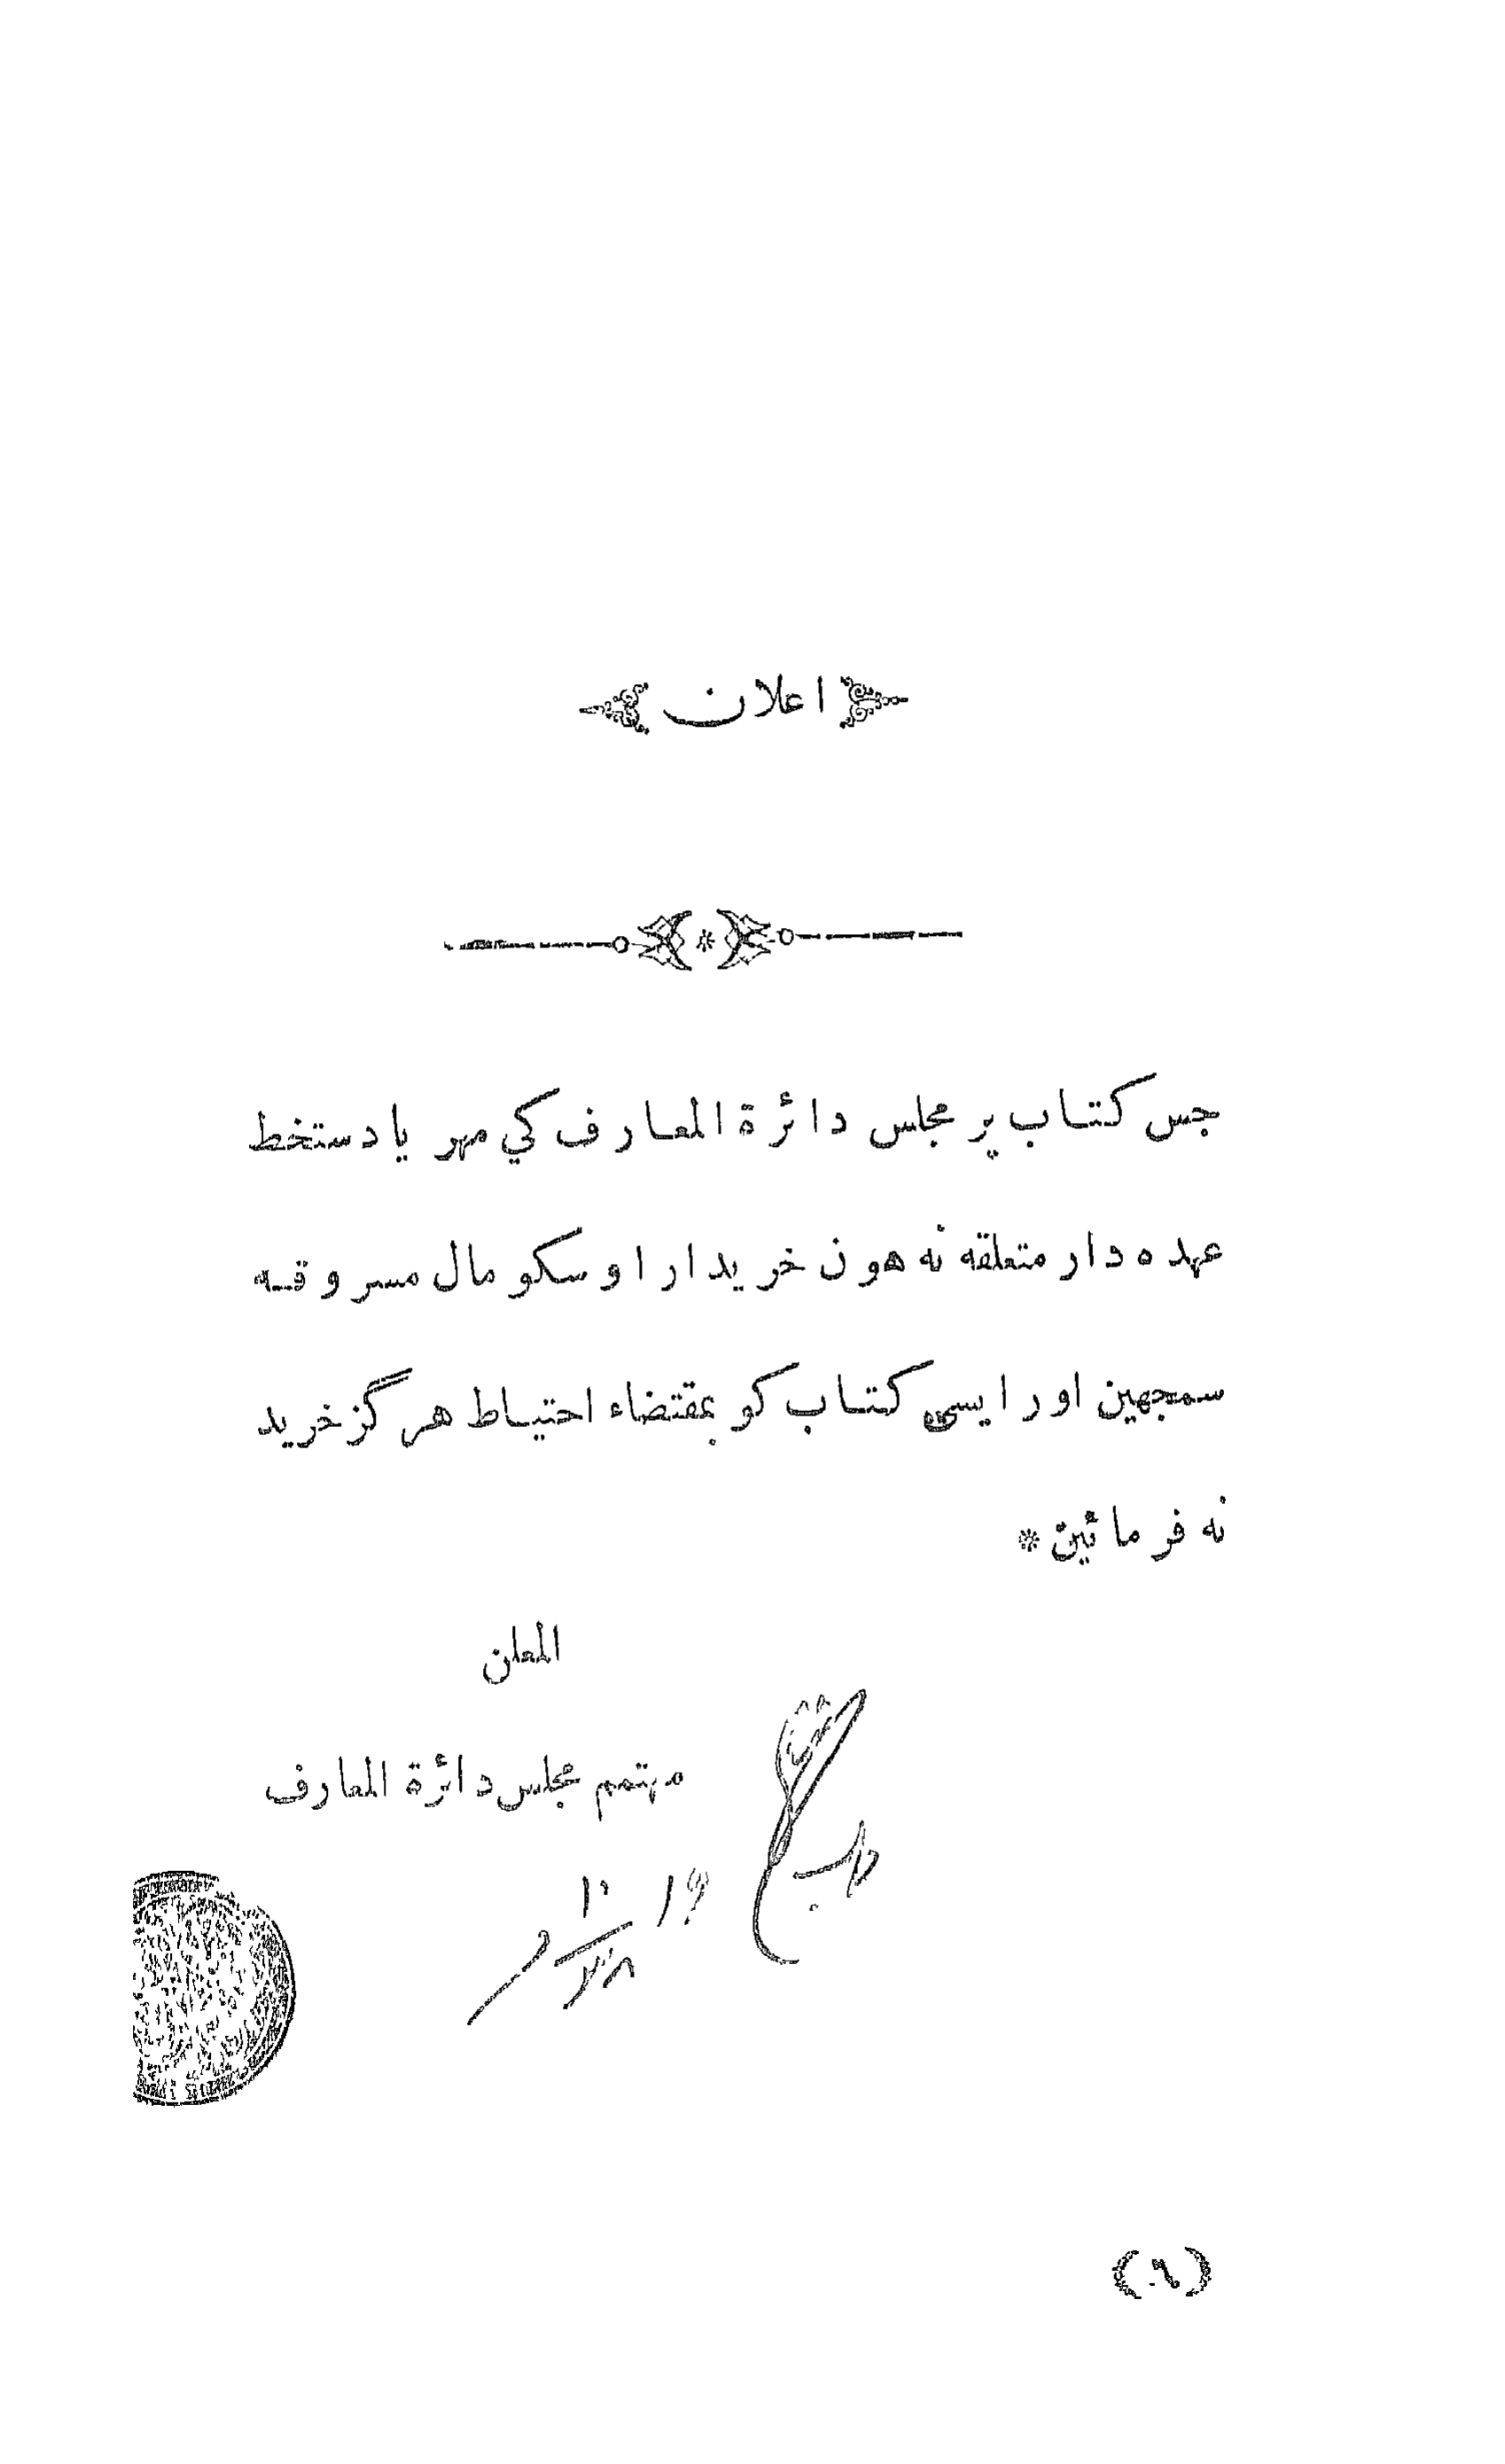 اعلان
جس کتاب پر مجلس دائرة المعارف کي مهر یا دستخط
عهده دار متعلقه نه هون خریدار اوسکو مال مسروقه
سمجهین اور ایسی کتاب کو بمقتضاء احتیاط هر گز خرید
نه فرمائین *
المعلن
مهتمم مجلس دائرة المعارف